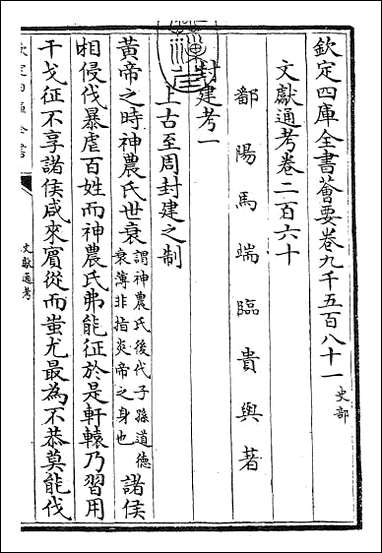 欽定四庫全書薈要卷九千五百八十一
史部
文獻通考卷二百六十
鄱陽馬端臨貴與著
封建考一
上古至周封建之制
黄帝之時神農氏世衰謂神農氏後代子孫道德衰薄非指炎帝之身也諸侯
相侵伐暴虐百姓而神農氏弗能征於是軒轅乃習用
干戈征不享諸侯咸來賔從而蚩尤最為不恭莫能伐
文獻通考